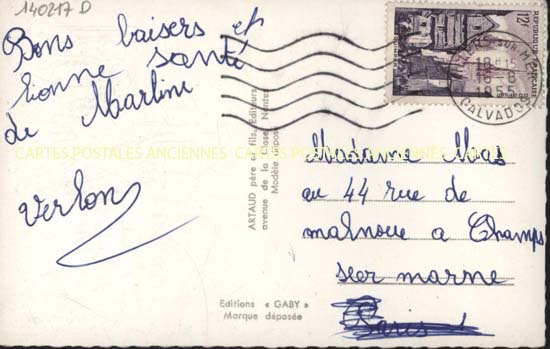 140217 D
Bons baisers et
bonne santé
de Martine
Verlon
ARTAUD père et fils, Editeurs
avenue de la Close, Nantes
Modèle déposé
Editions « GABY »
Marque déposée
12F
REPUBLIQUE FRANÇAISE
SUR-MER
1955
CALVADOS
Madame Mas
au 44 rue de
malnoue a Champs
seer marne
Paris
CARTES POSTALES ANCIENNES CARTES POSTALES ANCIENNES CARTES POSTALES